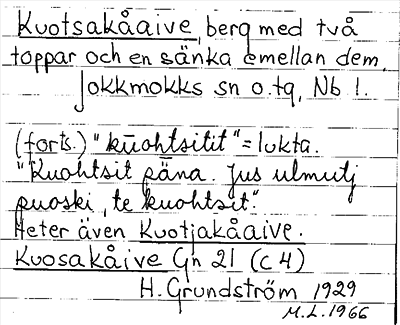 Kuotsakåaive, berg med två
toppar och en sänka emellan dem,
Jokkmokks sn o.tg, Nb l.
(forts.) "kūohtsitit" = lukta.
"Kuohtsit päna. Jus ulmutj
puoski, te kuohtsit".
Heter även Kuotjakåaive.
Kuosakåive Gn 21 (c 4)
H. Grundström 1929
M.L. 1966